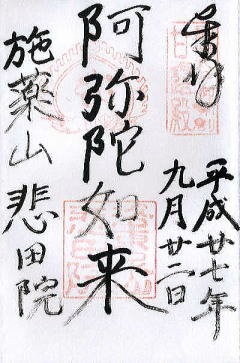 奉拝
平成廿七年
九月廿二日
阿弥陀如来
施薬山 悲田院